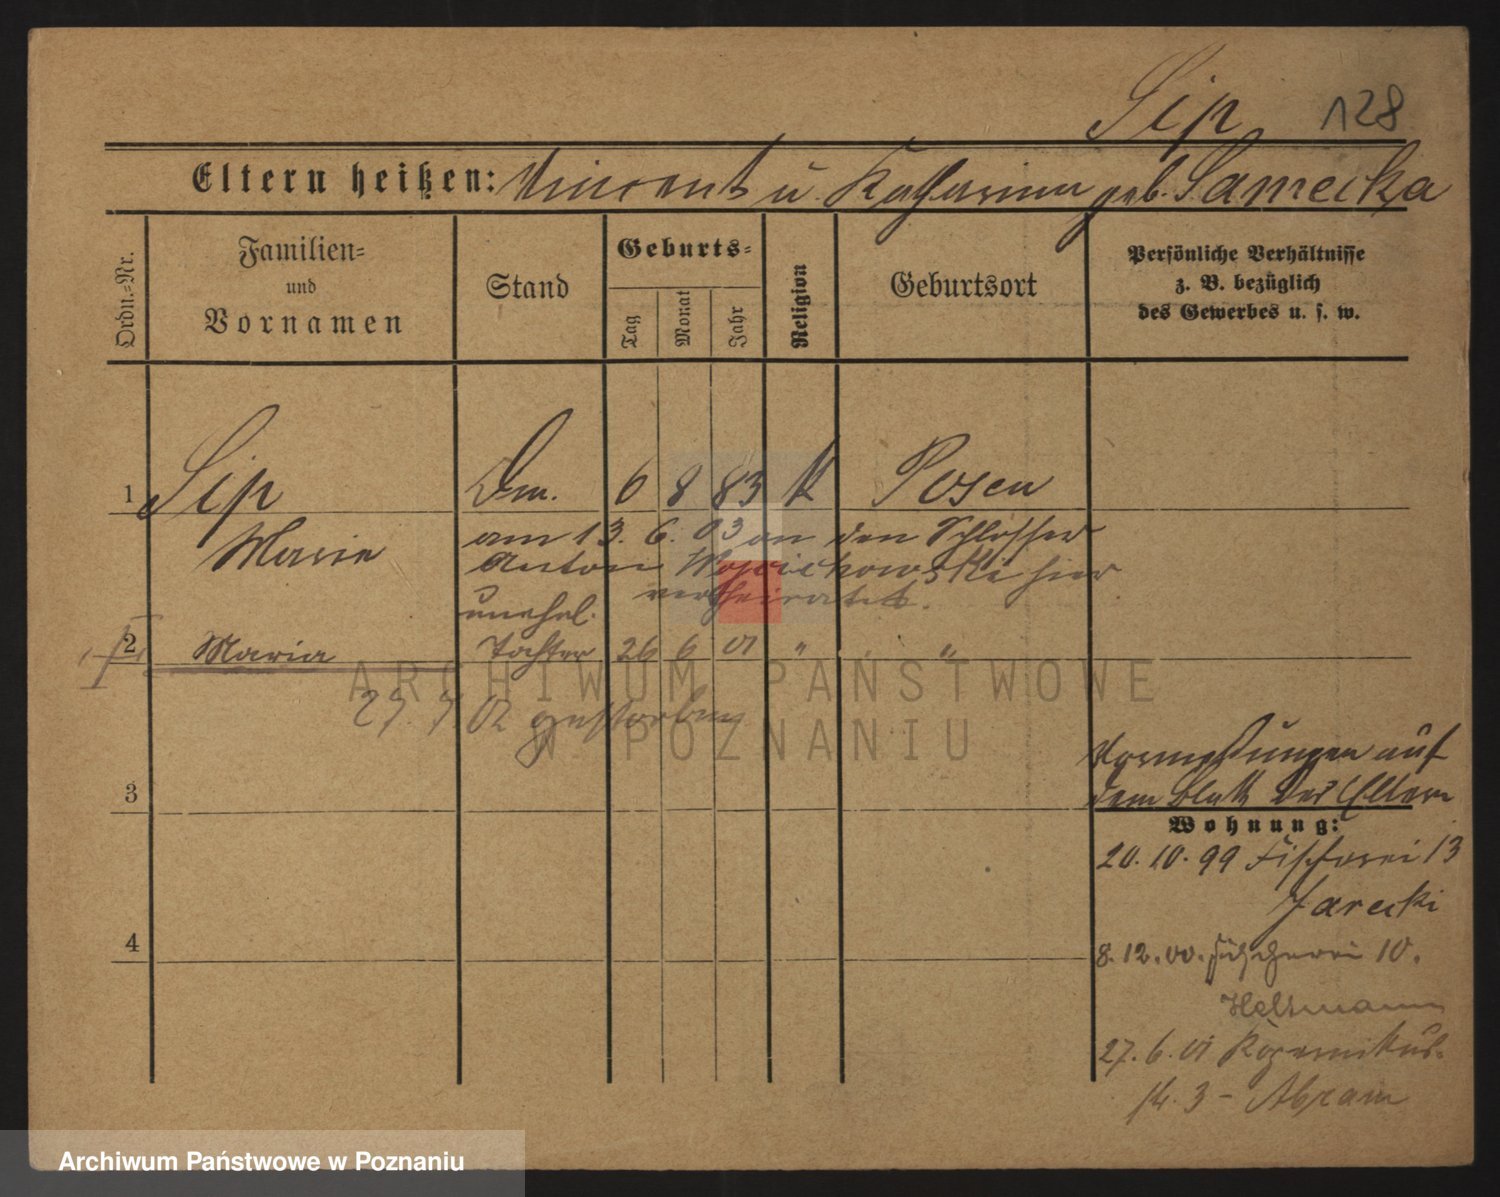 Sip 128
Eltern heißen: Vincent u. Katharina geb. Samecka
Ordn.-Nr.
Familien-
und
Vornamen
Stand
Geburts-
Tag
Monat
Jahr
Religion
Geburtsort
Persönliche Verhältnisse
z. B. bezüglich
des Gewerbes u. s. w.
1 Sip Dm. 6 8 83 K Posen
Marie am 13. 6. 03 an den Schlosser
Anton Wojcickowski hier
verheiratet.
unehel.
2 Maria Tochter 26 6 01 " "
27. 7 02 gestorben
ARCHIWUM PAŃSTWOWE
W POZNANIU
Vormerkungen auf
3 dem Blatt der Eltern
Wohnung:
20. 10. 99 Fischerei 13
Jarecki
4 8. 12. 00. Fischerei 10.
27. 6. 01 Kopernikus-
str. 3 - Abram
Archiwum Państwowe w Poznaniu